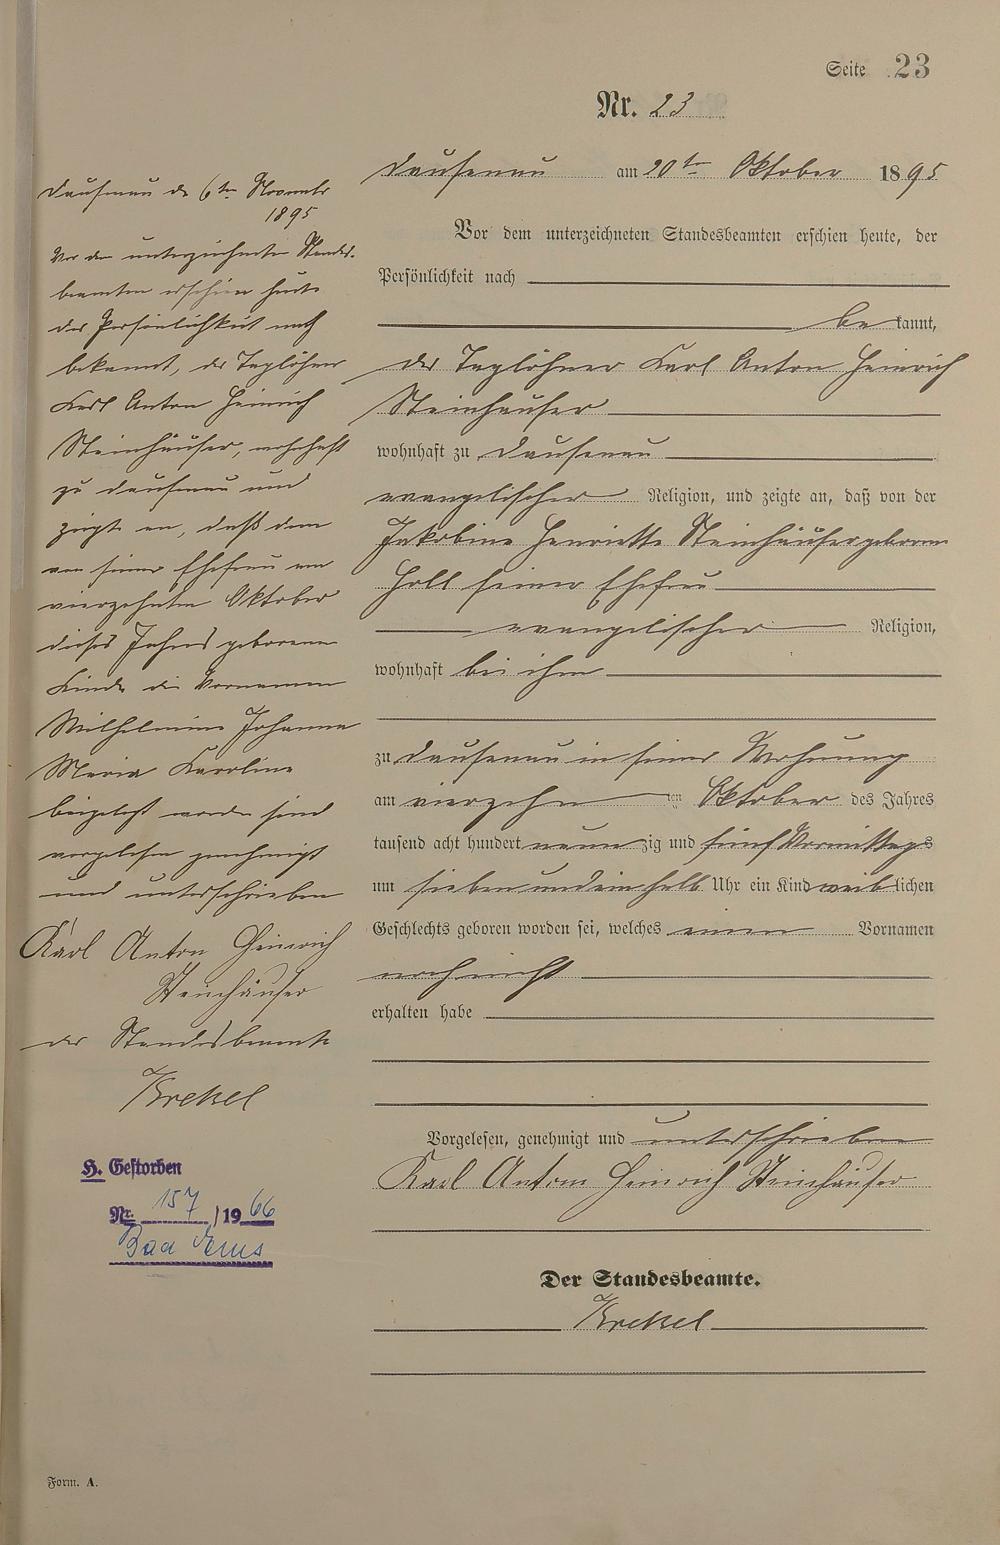 Seite 23
Nr. 23
Dausenau am 20ten Oktober 1895
Vor dem unterzeichneten Standesbeamten erschien heute, der
Persönlichkeit nach
be kannt,
der Taglöhner Karl Anton Heinrich
Steinhäuser
wohnhaft zu Dausenau
evangelischer Religion, und zeigte an, daß von der
Jakobine Henriette Steinhäuser geborenen
Holl seiner Ehefrau
evangelischer Religion,
wohnhaft bei ihm
zu Dausenau in seiner Wohnung
am vierzehn ten Oktober des Jahres
tausend acht hundert neun zig und fünf Vormittags
um sieben und ein halb Uhr ein Kind weib lichen
Geschlechts geboren worden sei, welches einen Vornamen
noch nicht
erhalten habe
Vorgelesen, genehmigt und unterschrieben
Karl Anton Heinrich Steinhäuser
Der Standesbeamte.
Krekel
Dausenau de 6ten November
1895
Vor dem unterzeichneten Standes-
beamten erschien heute
der Persönlichkeit nach
bekannt, der Taglöhner
Karl Anton Heinrich
Steinhäuser, wohnhaft
zu Dausenau und
zeigte an, daß dem
von seiner Ehefrau am
vierzehnten Oktober
dieses Jahres geborenen
Kinde die Vornamen
Wilhelmine Johanna
Maria Karoline
beigelegt worden sind
vorgelesen genehmigt
und unterschrieben
Karl Anton Heinrich
Steinhäuser
der Standesbeamte
Krekel
H. Gestorben
Nr. 157 / 1966
Bad Ems
Form. A.